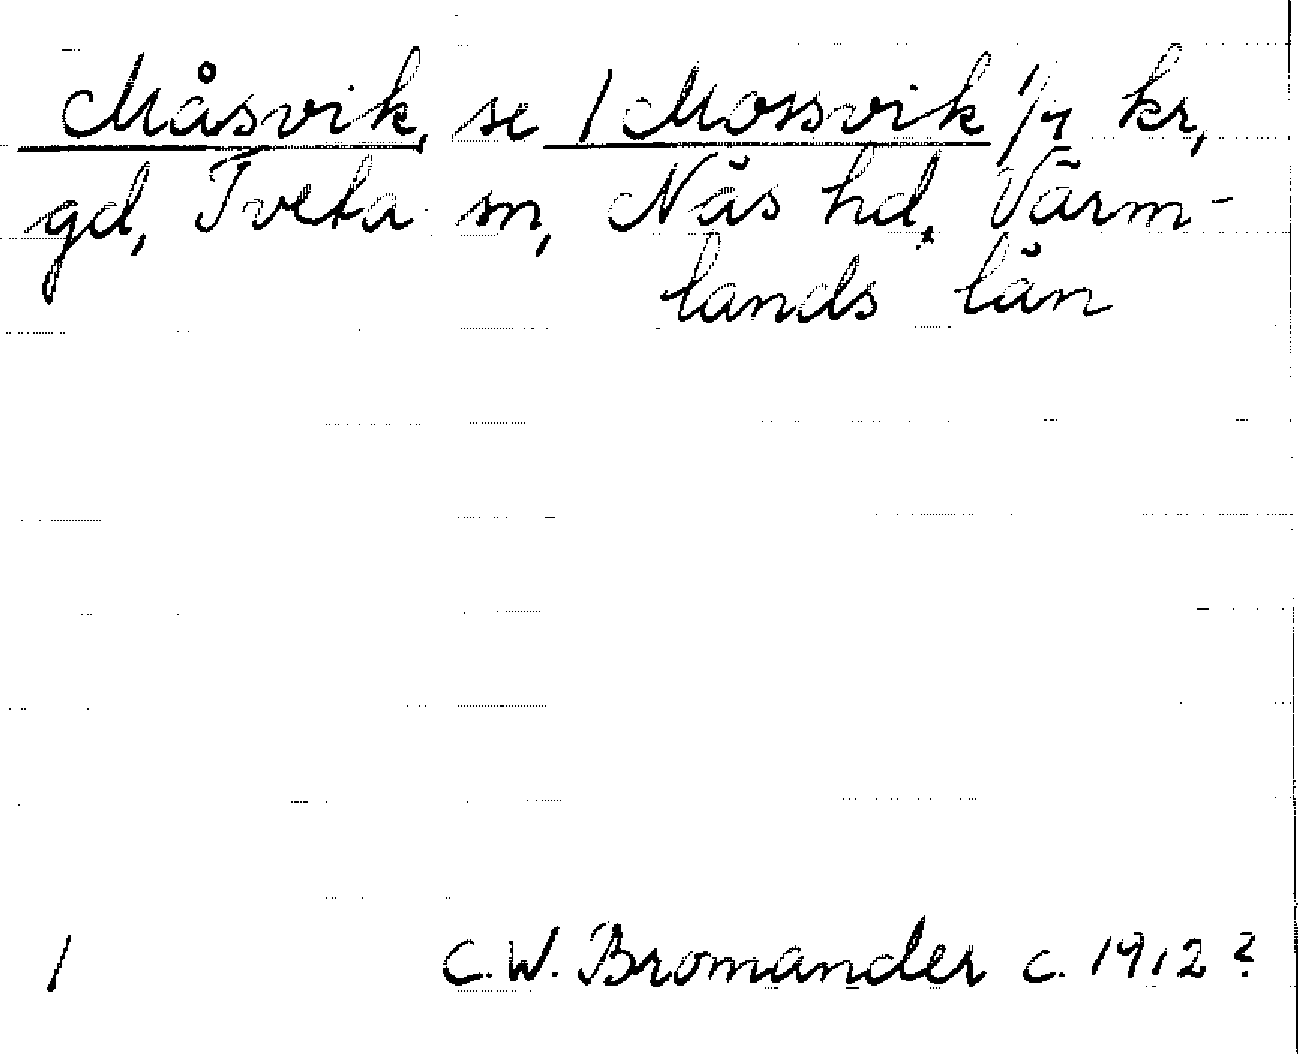 Måsvik, se 1 Mossvik 1/1 kr,
gd, Tveta sn, Näs hd, Värm-
lands län
1 C.W. Bromander c. 1912?